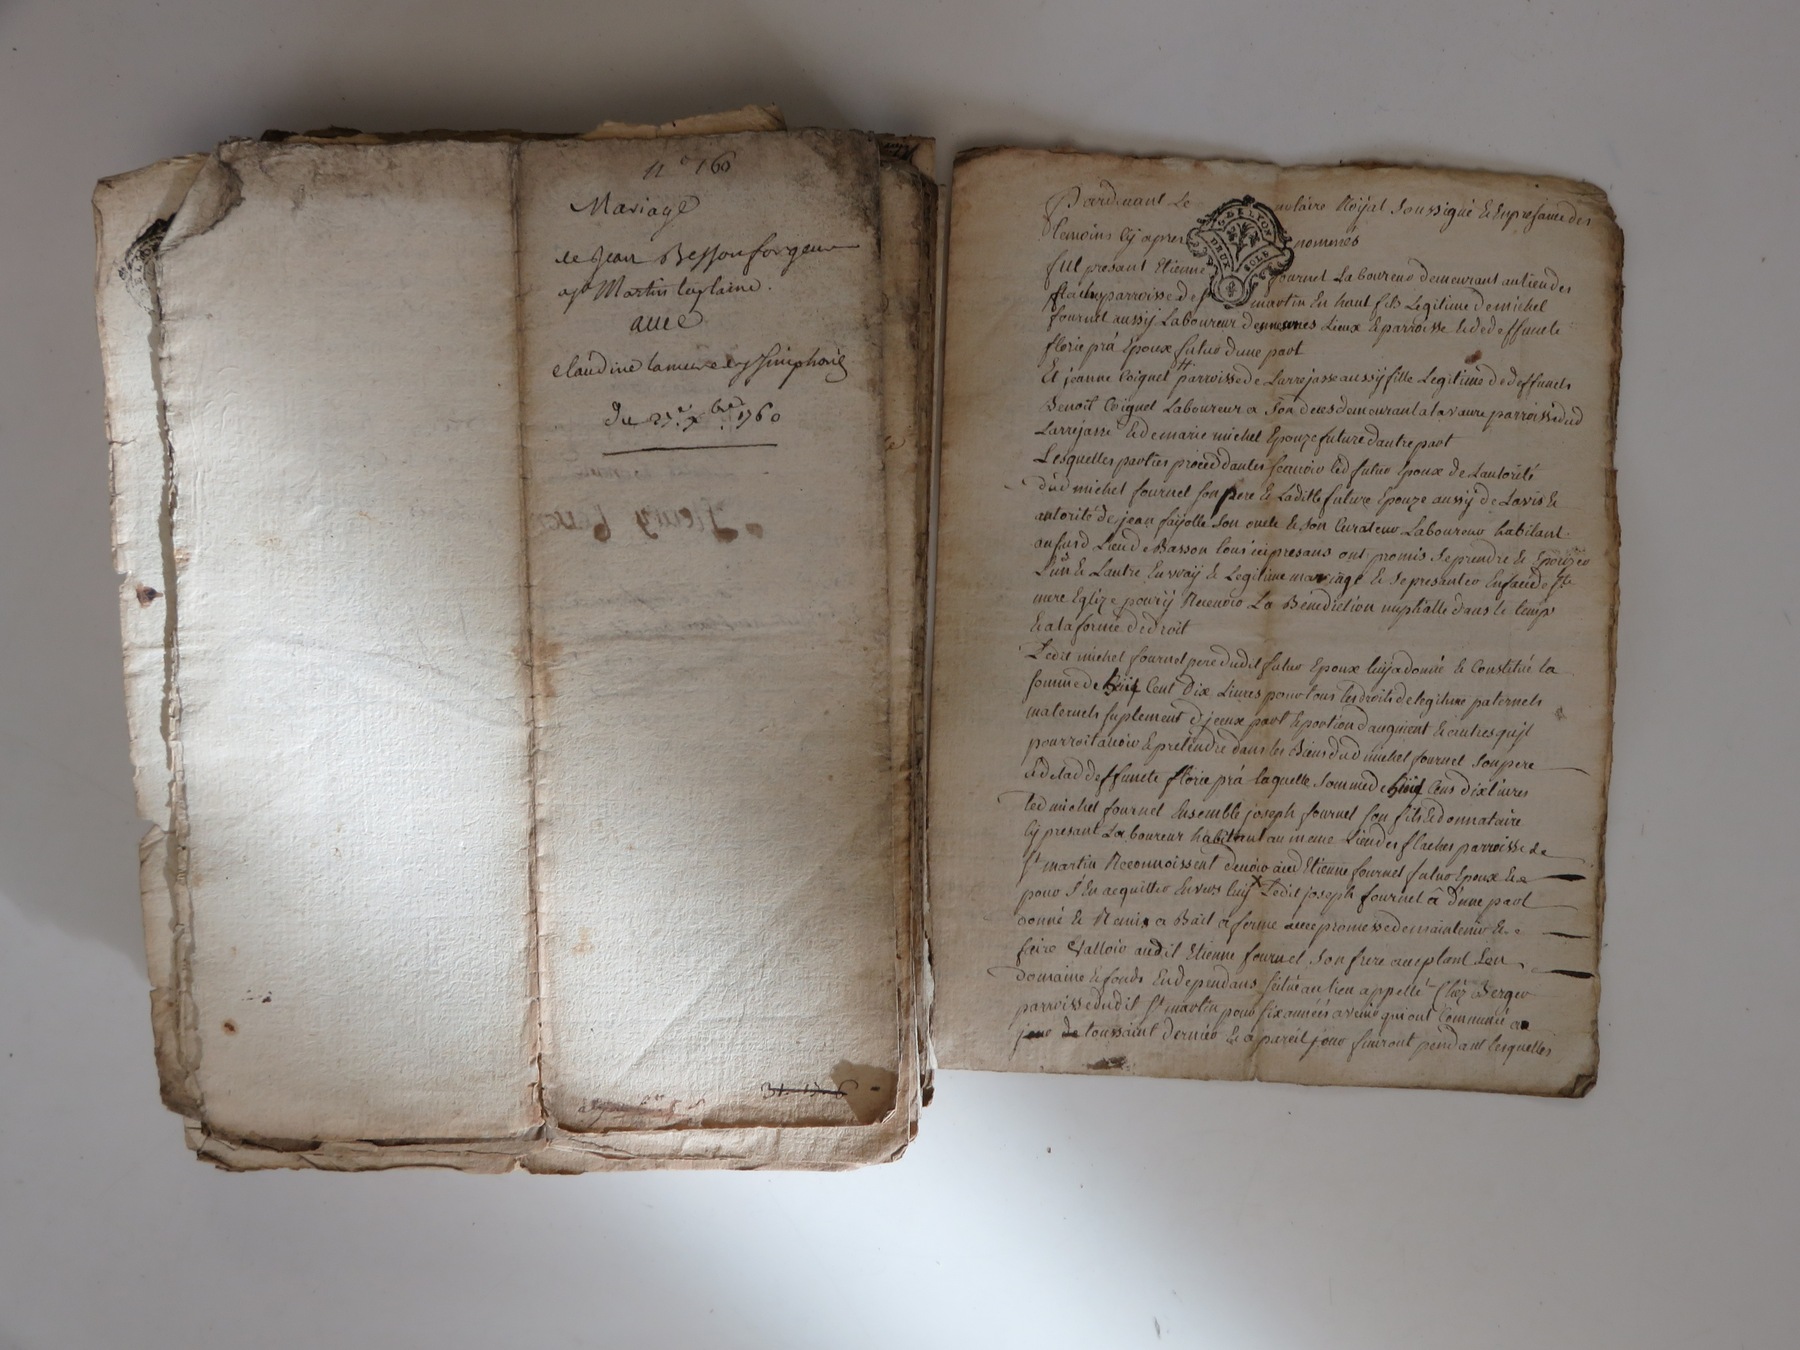 n° 160
Mariage
de jean Besson forgeur
a St Martin la plaine.
avec
claudine lamure de St Simphorien
du 27e xbre 1760
31-1706
Pardevant Le notaire Royal soussigné & En presance des
temoins Cy apres nommés
G. DE LYON
DEUX SOLS
fut presant Etienne fournel Laboureur demeurant au lieu des
flaches parroisse de St martin En haut fils Legitime de michel
fournel aussy Laboureur de memes Lieux & parroisse & de deffuncte
florie pra Epoux futur d'une part
Et jeanne Coignet parroisse de Larrejasse aussy fille Legitime de deffuncts
Benoit Coignet Laboureur a son deces demeurant a Lavaure parroisse dud
Larrejasse & de marie michel Epouze future dautre part
Lesquelles parties procedantes scavoir led futur Epoux de Lautorité
dud michel fournel son pere & Laditte future Epouze aussy de Lavis &
autorité de jean fayolle son oncle & son Curateur Laboureur habitant
au susd Lieu de Basson tous ici presans ont promis se prendre & Epouzer
L'un & Lautre En vray & Legitime mariage & se presanter En face de Ste
mere Eglize pour y Recevoir La Benediction nuptialle dans le temp
& a la forme de droit
Ledit michel fournel pere dudit futur Epoux luy a donné & Constitué la
somme de huit Cent Dix Livres pour tous les droits de legitime paternels
maternels suplement d'jceux part & portion d'augment & autres qu'jl
pourroit avoir & pretendre dans les Biens dud michel fournel son pere
& de lad deffuncte florie pra laquelle somme de huit Cens dix livres
led michel fournel Ensemble joseph fournel son fils & donnataire
Cy presant Laboureur habitant au meme Lieu des flaches parroisse de
St martin Reconnoissent devoir aud Etienne fournel futur Epoux &
pour s'En acquitter Envers luy Ledit joseph fournel a d'une part
donné & Remis a Bail a ferme avec promesse de maintenir &
faire valloir audit Etienne fournel son frere acceptant Son
Domaine & fonds En dependans scitué au lieu appellé Chez Berger
parroisse dudit St martin pour six années a venir qui ont Commencé au
jour de toussaint dernier & a pareil jour finiront pendant lesquelles